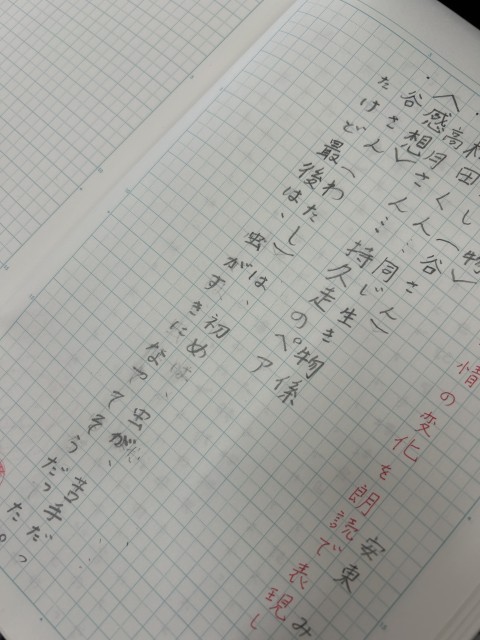 情の変化を朗読で表現し
安東み
物〉
(谷さん)
田くん…同じ生き物係
高月さん…持久走のペア
〈感想〉
谷さん(わたし)は、初めは、虫が、苦手だっ
たけど最後は、虫がすきになってそうだった。